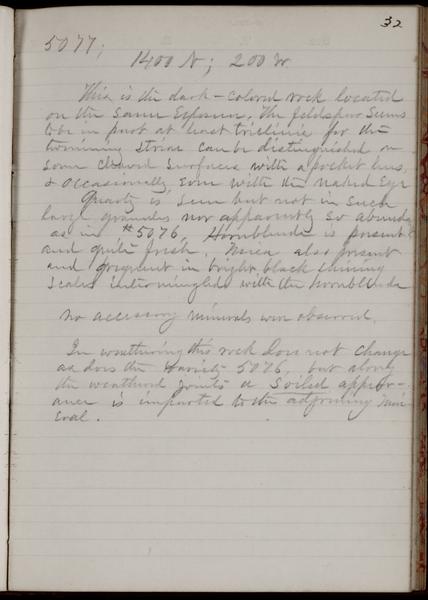 32
5077;
1400 N; 200 W
This is the dark-colored rock located
on the same exposure. The feldspar seems
to be in part at least triclinic for the
twinning striae can be distinguished on
some cleaved surfaces with a pocket lens,
& occasionally even with the naked eye
Quartz is seen but not in such
large granules nor apparently so abundant
as in #5076, Hornblende is present
and quite fresh. Mica also present
and frequent in bright black shining
scales intermingled with the hornblende
no accessory minerals were observed.
In weathering this rock does not change
as does the variety 5076, but along
the weathered joints a soiled appear-
ance is imparted to the adjoining min-
eral.